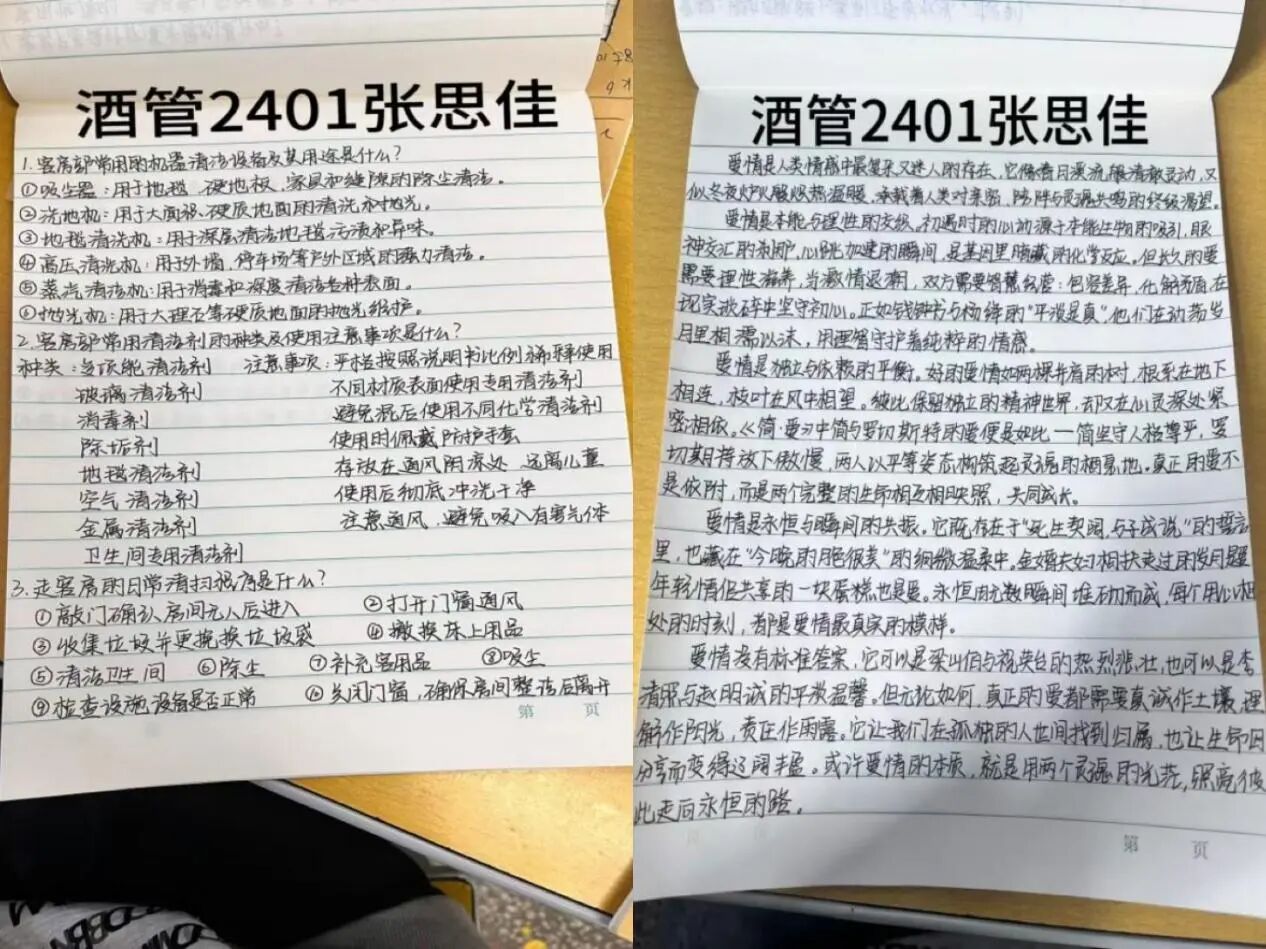 酒管2401张思佳
1.客房部常用的机器清洁设备及其用途是什么?
①吸尘器:用于地毯、硬地板、家具和缝隙的除尘清洁。
②洗地机:用于大面积硬质地面的清洗和抛光。
③地毯清洗机:用于深层清洁地毯污渍和异味。
④高压清洗机:用于外墙,停车场等户外区域的强力清洁。
⑤蒸汽清洁机:用于消毒和深度清洁各种表面。
⑥抛光机:用于大理石等硬质地面的抛光维护。
2.客房部常用清洁剂的种类及使用注意事项是什么?
种类:多功能清洁剂 注意事项:严格按照说明书比例稀释使用
玻璃清洁剂 不同材质表面使用专用清洁剂
消毒剂 避免混合使用不同化学清洁剂
除垢剂 使用时佩戴防护手套
地毯清洁剂 存放在通风阴凉处 远离儿童
空气清洁剂 使用后彻底冲洗干净
金属清洁剂 注意通风,避免吸入有害气体
卫生间专用清洁剂
3.走客房的日常清扫程序是什么?
①敲门确认房间无人后进入 ②打开门窗通风
③收集垃圾并更换换垃圾袋 ④撤换床上用品
⑤清洁卫生间 ⑥除尘 ⑦补充客用品 ⑧吸尘
⑨检查设施设备是否正常 ⑩关闭门窗,确保房间整洁后离开
第 页
酒管2401张思佳
爱情是人类情感中最复杂又迷人的存在,它像春日溪流般清澈灵动,又
似冬夜炉火般炽热温暖,承载着人类对亲密,陪伴与灵魂共鸣的终极渴望。
爱情是本能与理性的交织,初遇时的心动源于本能生物的吸引,眼
神交汇的刹那,心跳加速的瞬间,是基因里暗藏的化学反应。但长久的爱
需要理性滋养,当激情退潮,双方需要智慧经营:包容差异,化解矛盾,在
现实琐碎中坚守初心。正如钱钟书与杨绛的“平淡是真”,他们在动荡岁
月里相濡以沫,用理智守护着纯粹的情感。
爱情是独立与依赖的平衡。好的爱情如两棵并肩的树,根系在地下
相连,枝叶在风中相望。彼此保留独立的精神世界,却又在心灵深处紧
密相依。《简·爱》中简与罗切斯特的爱便是如此—简坚守人格尊严,罗
切斯特放下傲慢,两人以平等姿态构筑起灵魂的栖息地。真正的爱不
是依附,而是两个完整的生命相互相映照,共同成长。
爱情是永恒与瞬间的共振。它既存在于“死生契阔,与子成说”的誓言
里,也藏在“今晚的月色很美”的细微温柔中。金婚夫妇相扶走过的岁月是爱
年轻情侣共享的一块蛋糕也是爱。永恒由无数瞬间堆砌而成,每个用心相
处的时刻,都是爱情最真实的模样。
爱情没有标准答案,它可以是梁山伯与祝英台的热烈悲壮,也可以是李
清照与赵明诚的平淡温馨。但无论如何,真正的爱都需要真诚作土壤,理
解作阳光,责任作雨露。它让我们在孤独的人世间找到归属,也让生命因
分享而变得辽阔丰盈。或许爱情的本质,就是用两个灵魂的光芒,照亮彼
此走向永恒的路。
第 页